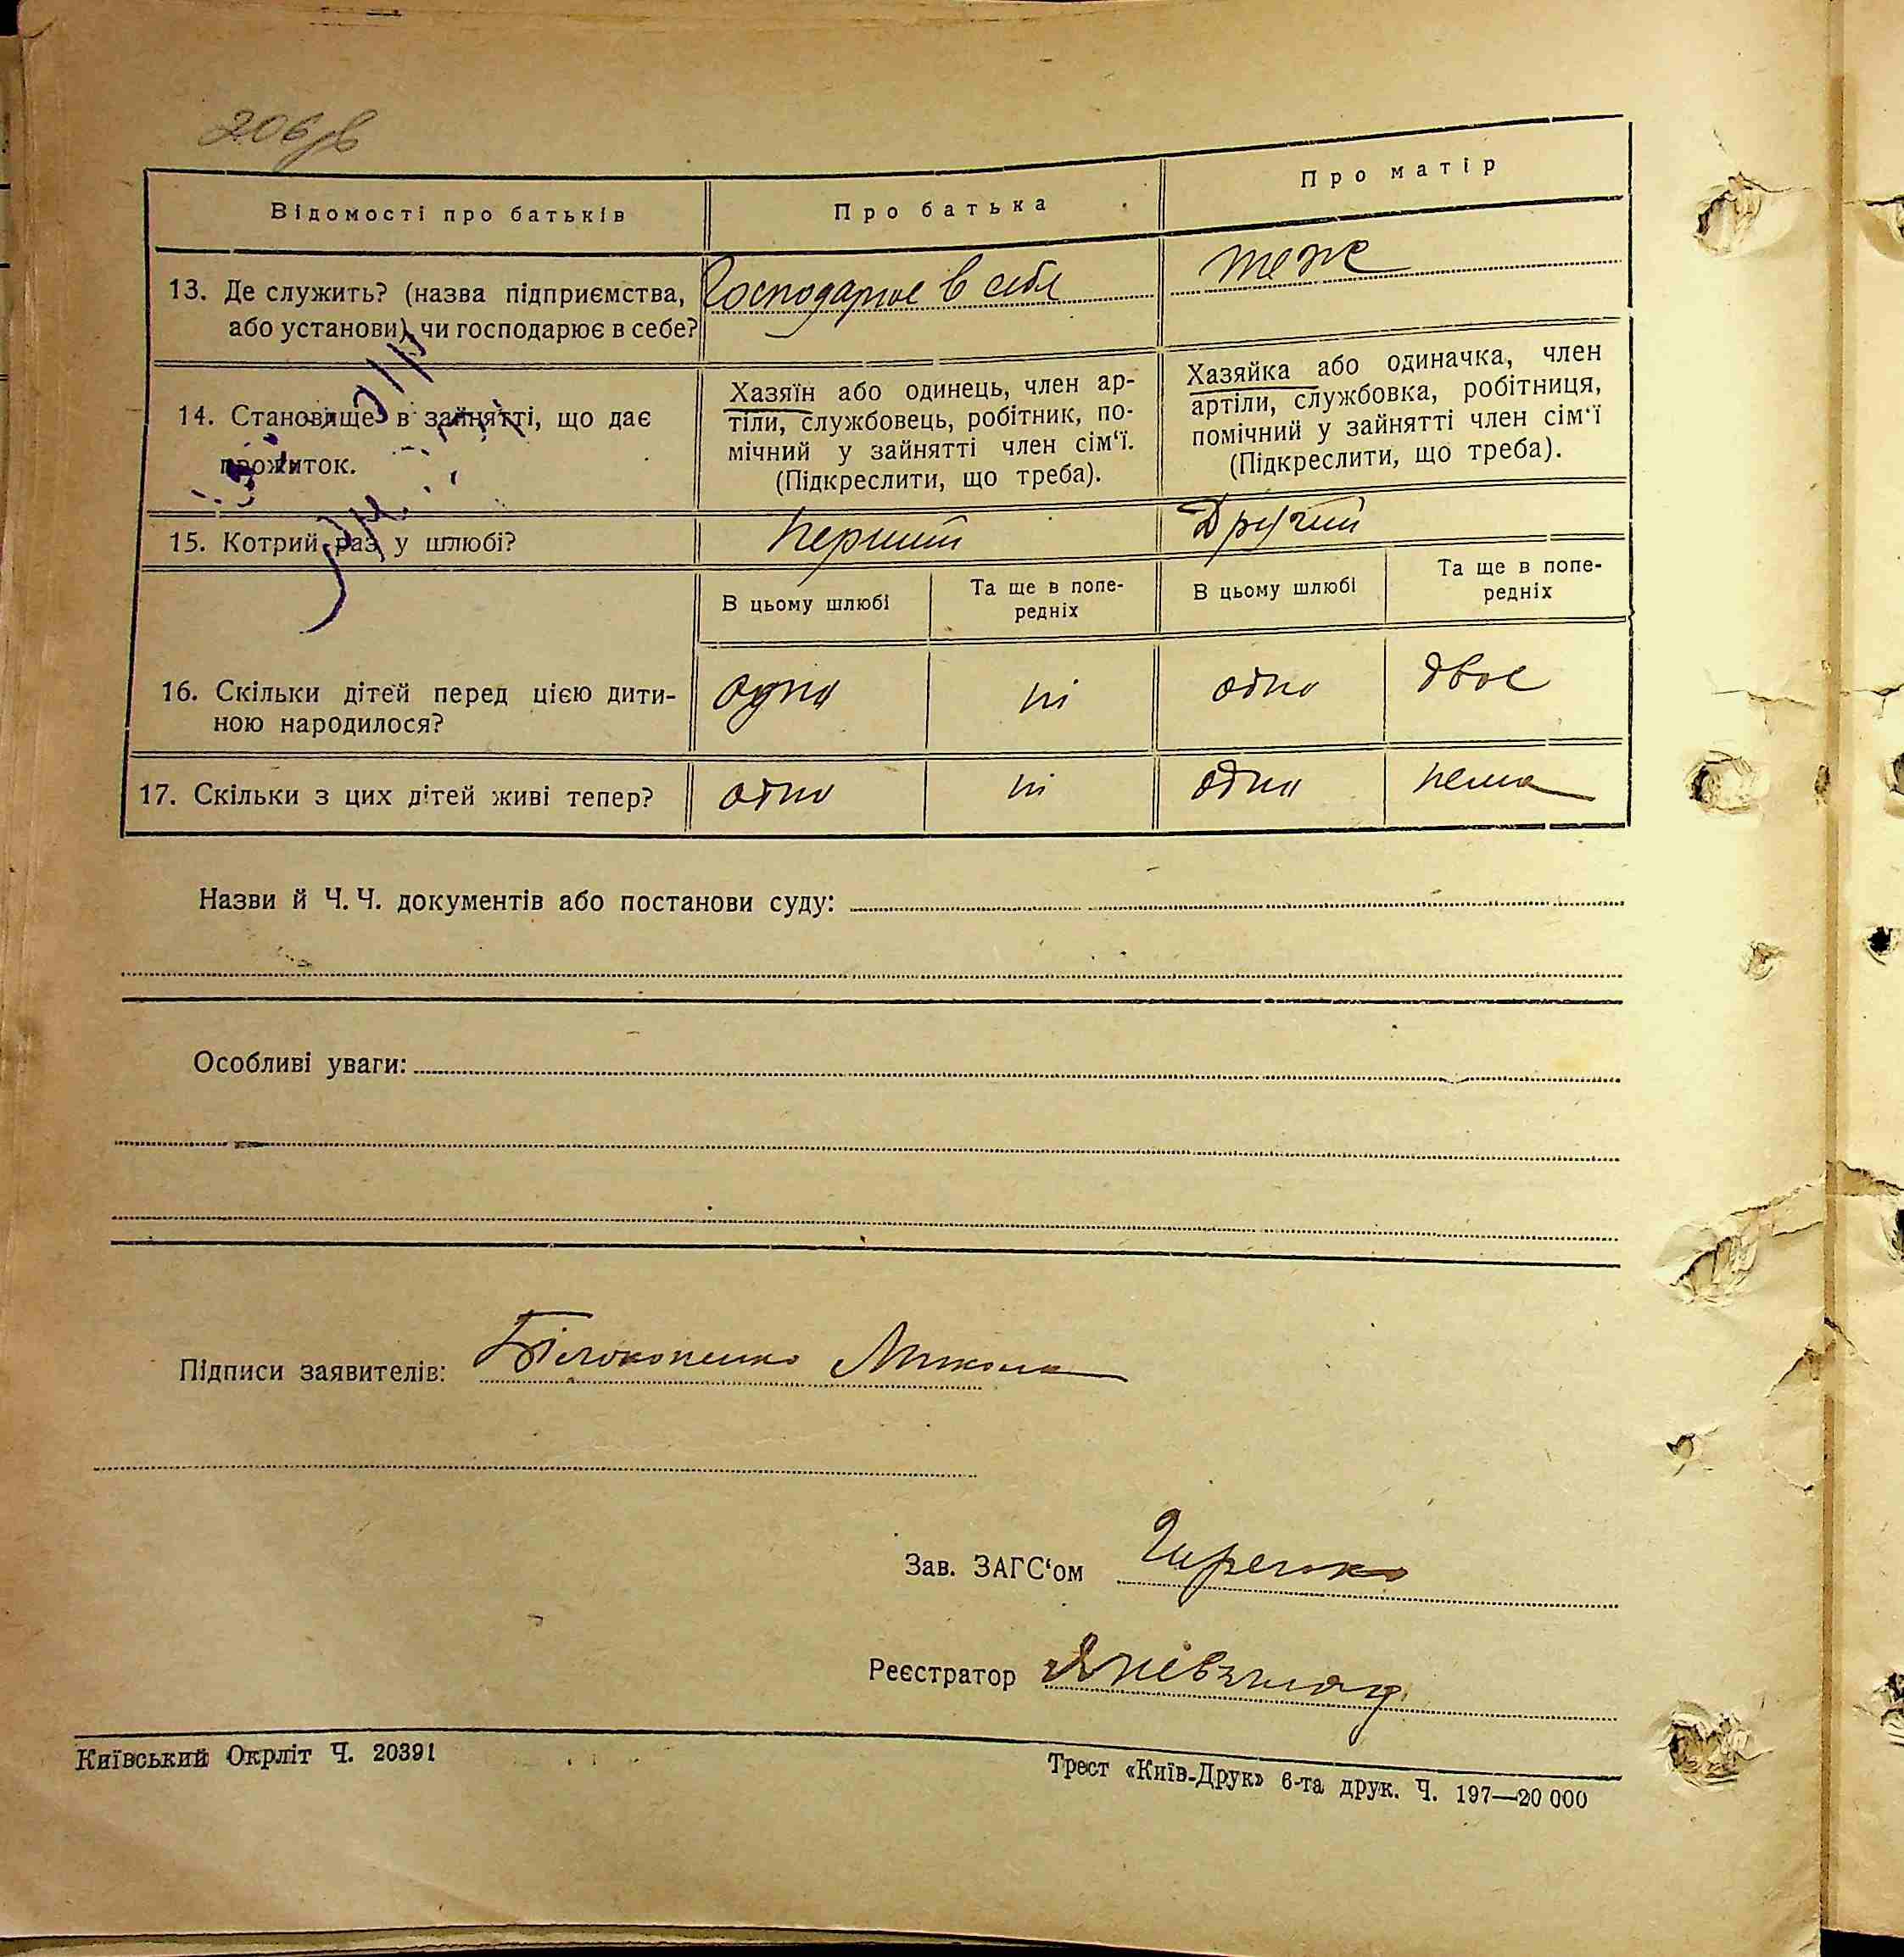 206 зв
Відомості про батьків
Про батька
Про матір
13. Де служить? (назва підприємства,
або установи) чи господарює в себе?
Господарює в себе
теж
14. Становище в зайнятті, що дає
прожиток.
Хазяїн або одинець, член ар-
тіли, службовець, робітник, по-
мічний у зайнятті член сім‘ї.
(Підкреслити, що треба).
Хазяйка або одиначка, член
артіли, службовка, робітниця,
помічний у зайнятті член сім‘ї
(Підкреслити, що треба).
15. Котрий раз у шлюбі?
перший
Другий
В цьому шлюбі
Та ще в попе-
редніх
В цьому шлюбі
Та ще в попе-
редніх
16. Скільки дітей перед цією дити-
ною народилося?
одно
ні
одно
двоє
17. Скільки з цих дітей живі тепер?
одно
ні
одно
нема
Назви й Ч. Ч. документів або постанови суду:
Особливі уваги:
Підписи заявителів: Білоконенко Микола
Зав. ЗАГС‘ом
Реєстратор
Київський Окрліт Ч. 20391
Трест «Київ-Друк» 6-та друк. Ч. 197—20 000